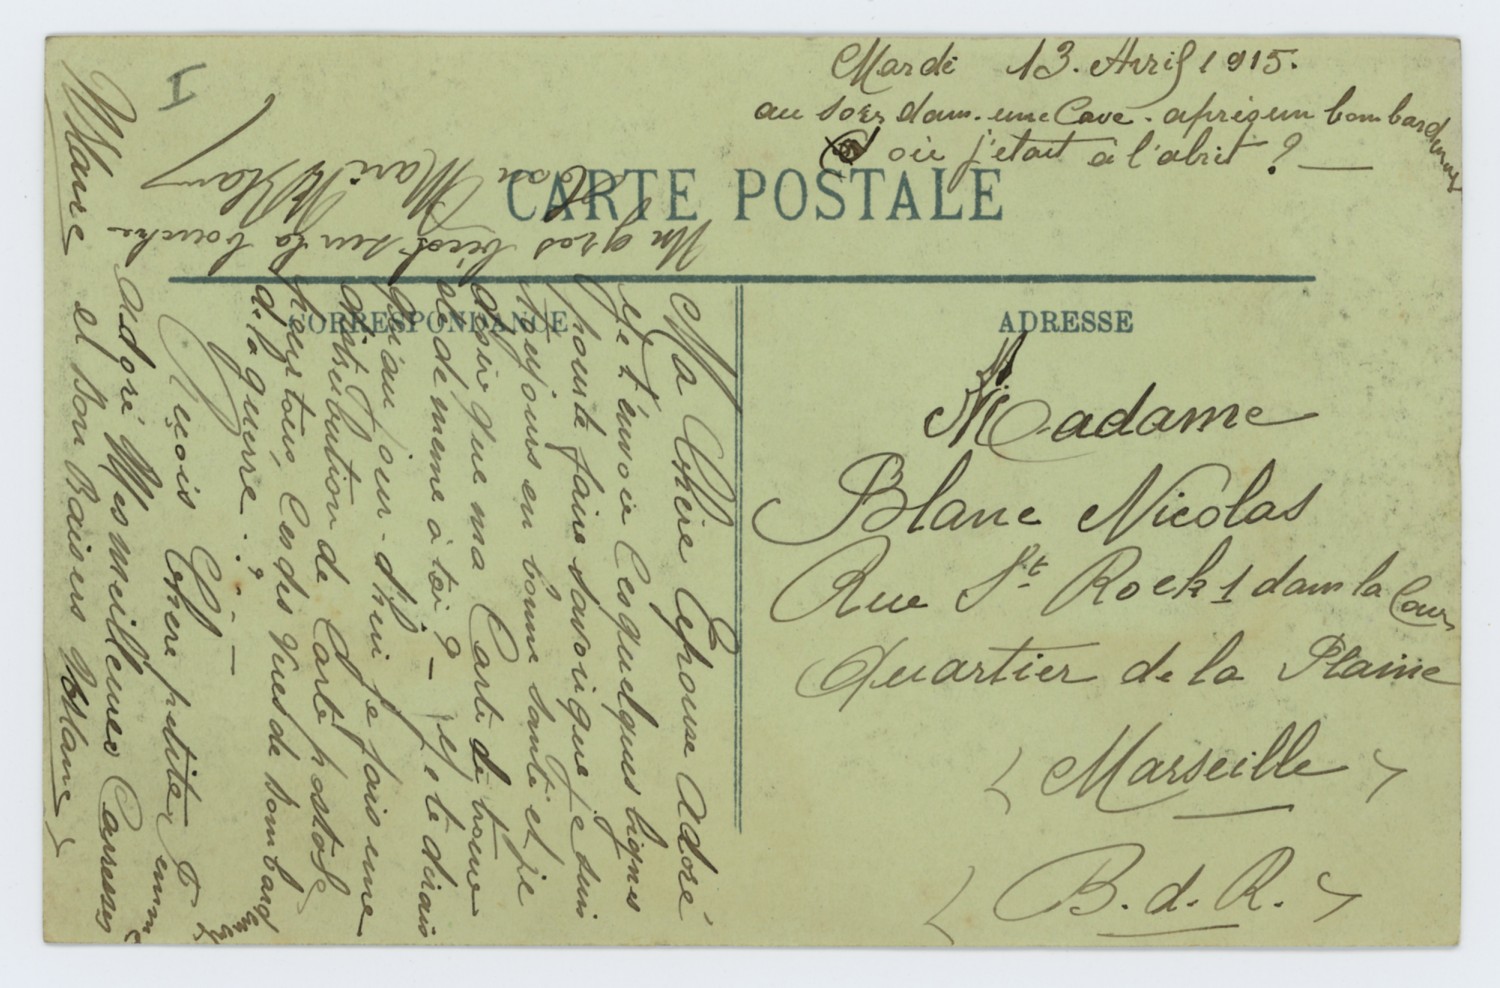 I
Mardi 13. Avril 1915.
au soir dans une Cave. après un bombardement
où j'etait à l'abrit ?
CARTE POSTALE
CORRESPONDANCE
ADRESSE
Madame
Blanc Nicolas
Rue St Rock 1 dans la Cour
Quartier de la Plaine
Marseille
B.d.R.
Ma Chére Epouse Adoré
Je t'envoie Ces quelques lignes
pour te faire savoir que je suis
toujours en bonne santé et je
désir que ma Carte te trouve
de meme à toi ? - Je te dirais
qu'aujour-d'hui je fais une
distribution de Carte postale
pour tous, Ces des Vues de bombard
de la guerre..?
Reçois Chére petite Femme
adoré Mes meilleures Caresses
et Bon Baisers Blanc
Blanc
Un gros bécot sur la bouche
Ton Mari Blanc